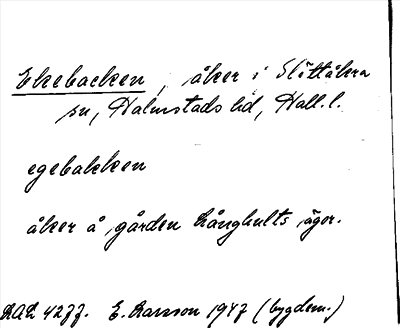 Ekebacken, åker i Slöttåkra
sn, Halmstads hd, Hall. l.
egebakken
åker å gården Långhults ägor.
E. Larsson 1947 (bygdem.)